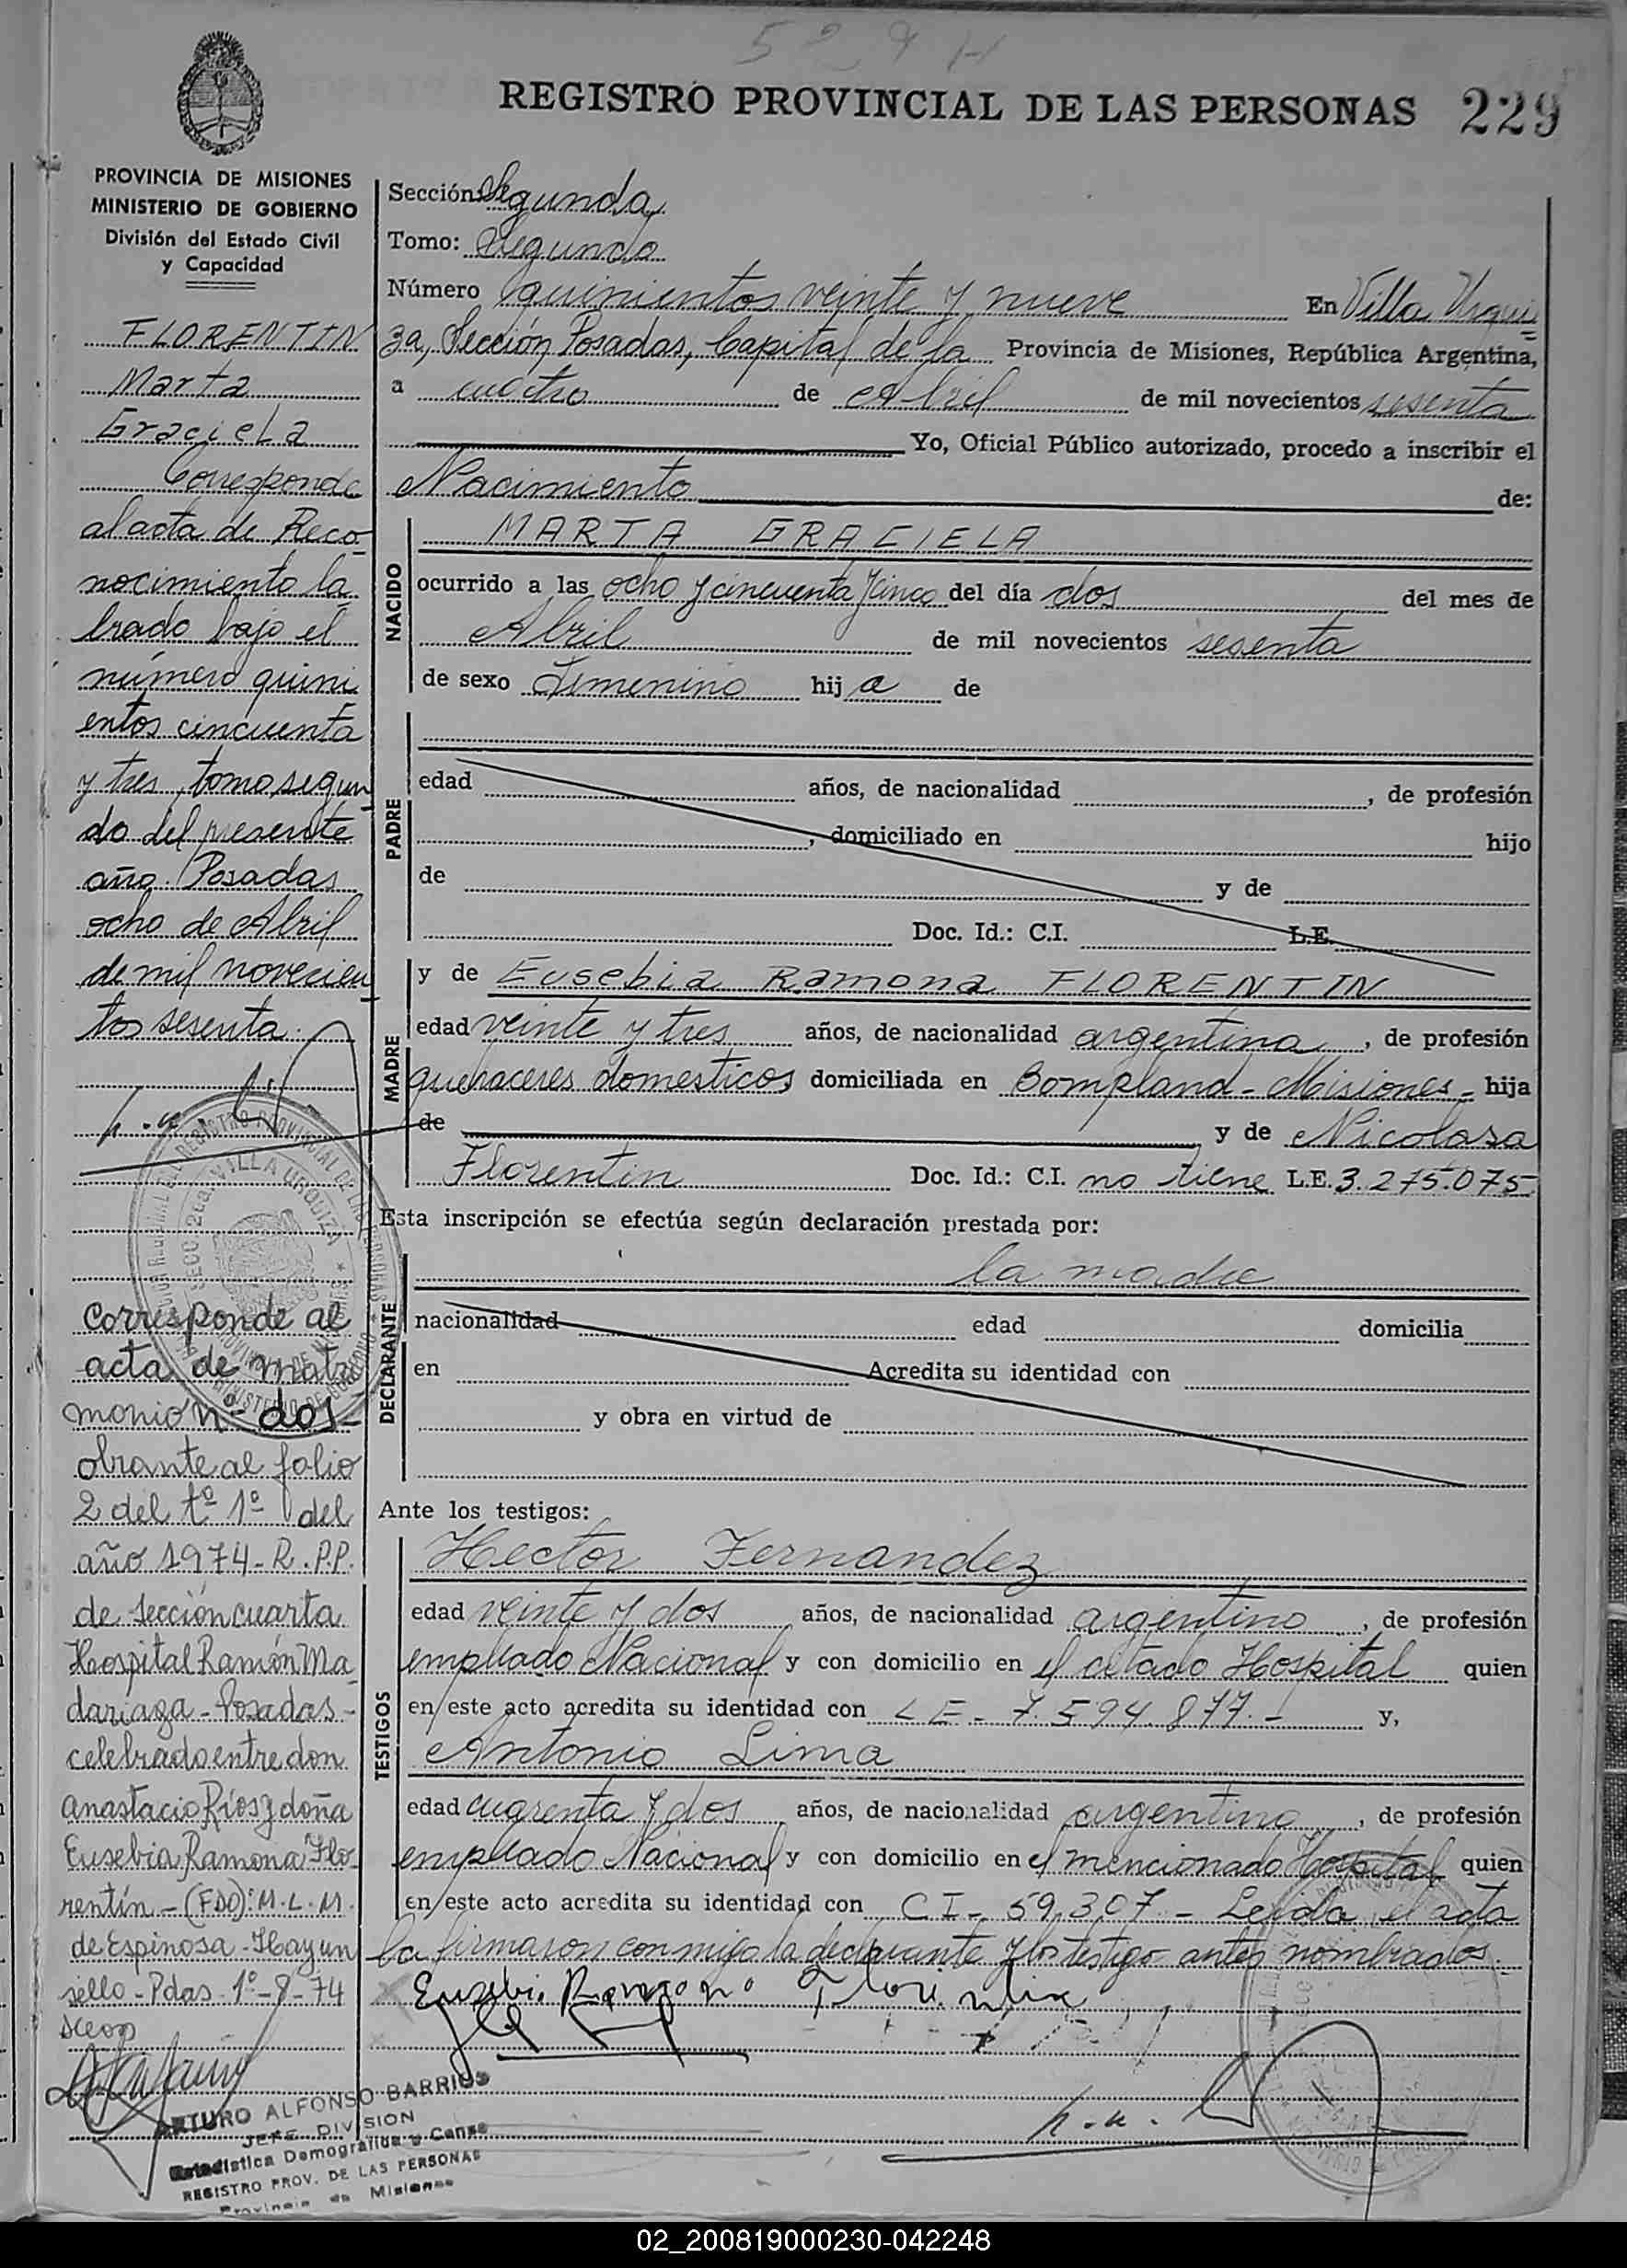 5 2 9 H
REGISTRO PROVINCIAL DE LAS PERSONAS 229
PROVINCIA DE MISIONES
MINISTERIO DE GOBIERNO
División del Estado Civil
y Capacidad
FLORENTIN
Marta
GracieLa
Corresponde
al acta de Reco
nocimiento la
brado bajo el
número quini
entos cincuenta
y tres, tomo segun
do del presente
año. Posadas
ocho de Abril
de mil novecien
tos sesenta.
corresponde al
acta de matri
monio nº dos-
obrante al folio
2 del tº 1º del
año 1974- R.P.P.
de sección cuarta
Hospital Ramón Ma
dariaga - Posadas-
celebrado entre don
anastacio Ríos y doña
Eusebia Ramona Flo-
rentín - (FDO): M.L.M.
de Espinosa - Hay un
sello - Pdas - 1º-8-74
ARTURO ALFONSO BARRIOS
JEFE DIVISION
Estadistica Demografica y Censo
REGISTRO PROV. DE LAS PERSONAS
Provincia de Misiones
Sección: Segunda
Tomo: Segundo
Número quinientos veinte y nueve En Villa Urqui
za, Sección Posadas, Capital de la Provincia de Misiones, República Argentina,
a cuatro de Abril de mil novecientos sesenta
Yo, Oficial Público autorizado, procedo a inscribir el
Nacimiento de:
NACIDO
MARTA GRACIELA
ocurrido a las ocho y cincuenta y cinco del día dos del mes de
Abril de mil novecientos sesenta
de sexo femenino hij a de
PADRE
edad años, de nacionalidad , de profesión
, domiciliado en hijo
de y de
Doc. Id.: C.I. L.E.
MADRE
y de Eusebia Ramona FLORENTIN
edad veinte y tres años, de nacionalidad argentina, de profesión
quehaceres domesticos domiciliada en Bompland - Misiones - hija
de y de Nicolasa
Florentin Doc. Id.: C.I. no tiene L.E. 3.275.075
Esta inscripción se efectúa según declaración prestada por:
DECLARANTE
la madre
nacionalidad edad domicilia
en Acredita su identidad con
y obra en virtud de
Ante los testigos:
TESTIGOS
Hector Fernandez
edad veinte y dos años, de nacionalidad argentino, de profesión
empleado Nacional y con domicilio en el citado Hospital quien
en este acto acredita su identidad con LE- 7.594.877.- y,
Antonio Lima
edad cuarenta y dos años, de nacionalidad argentino, de profesión
empleado Nacional y con domicilio en el mencionado Hospital quien
en este acto acredita su identidad con C I - 59,307 - Leida el acta
la firmaron conmigo la declarante y los testigo antes nombrados.
Eusebia Ramona Florentin
02_200819000230-042248